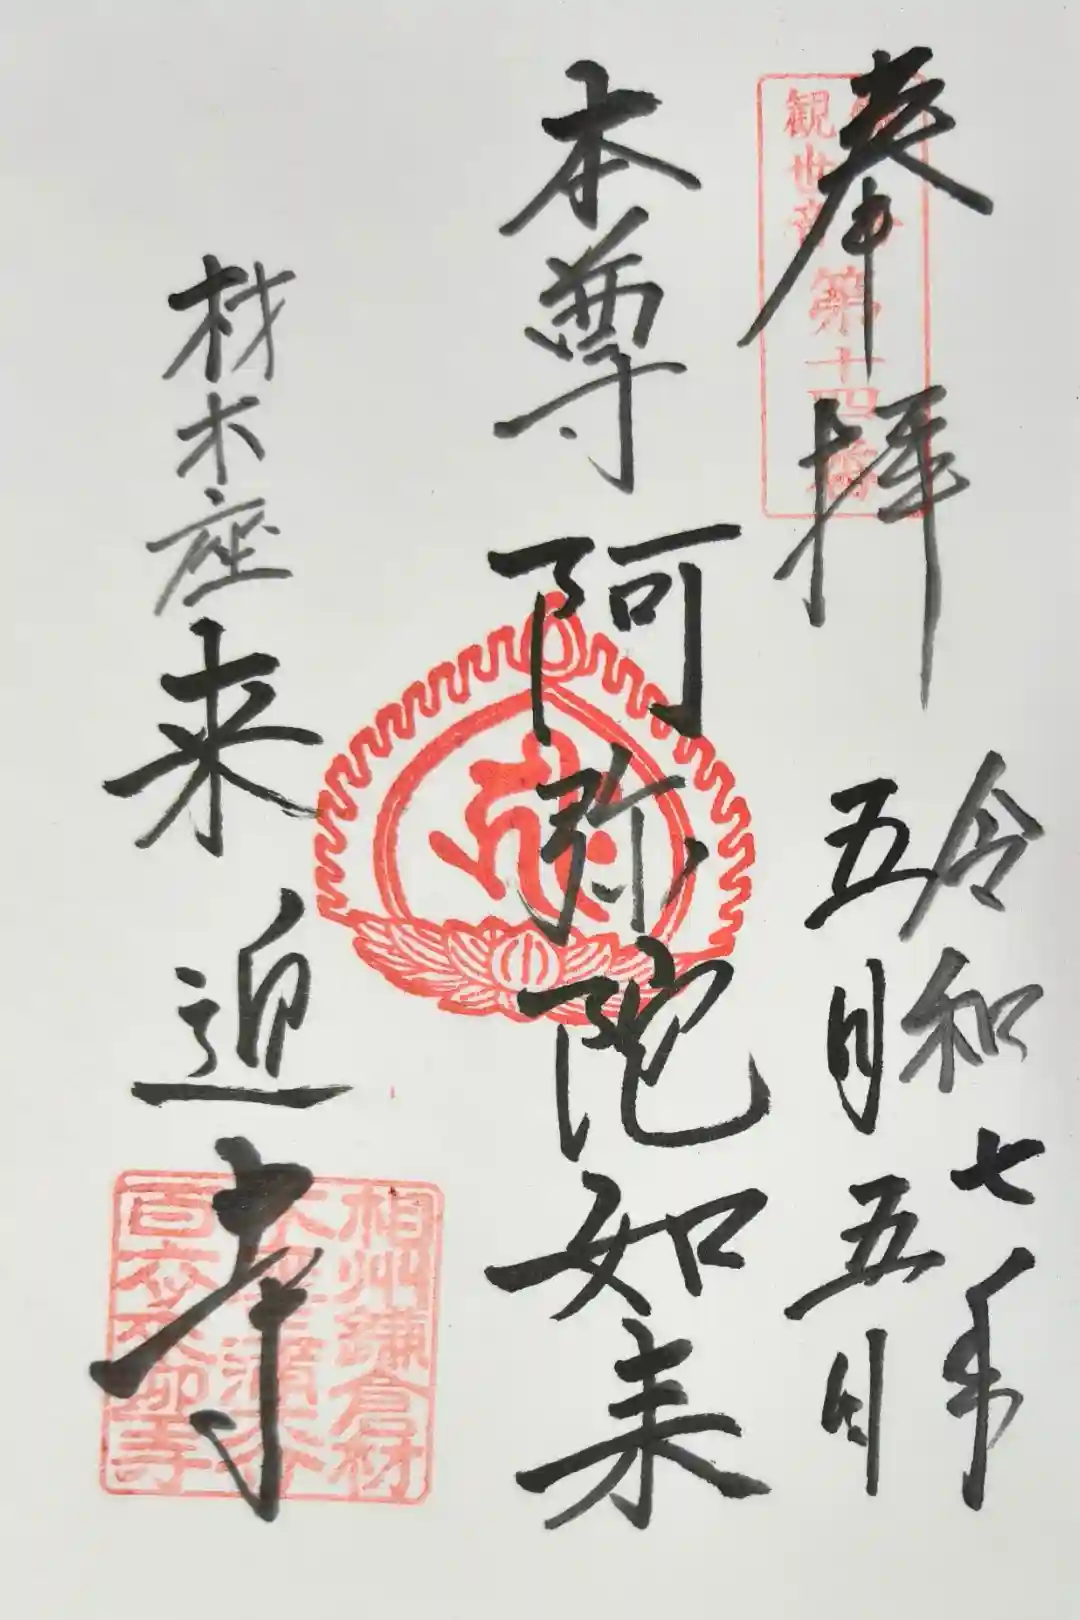 奉拝
令和七年
五月五日
本尊
阿弥陀如来
材木座来迎寺
観世音
第十四番
相州鎌倉材